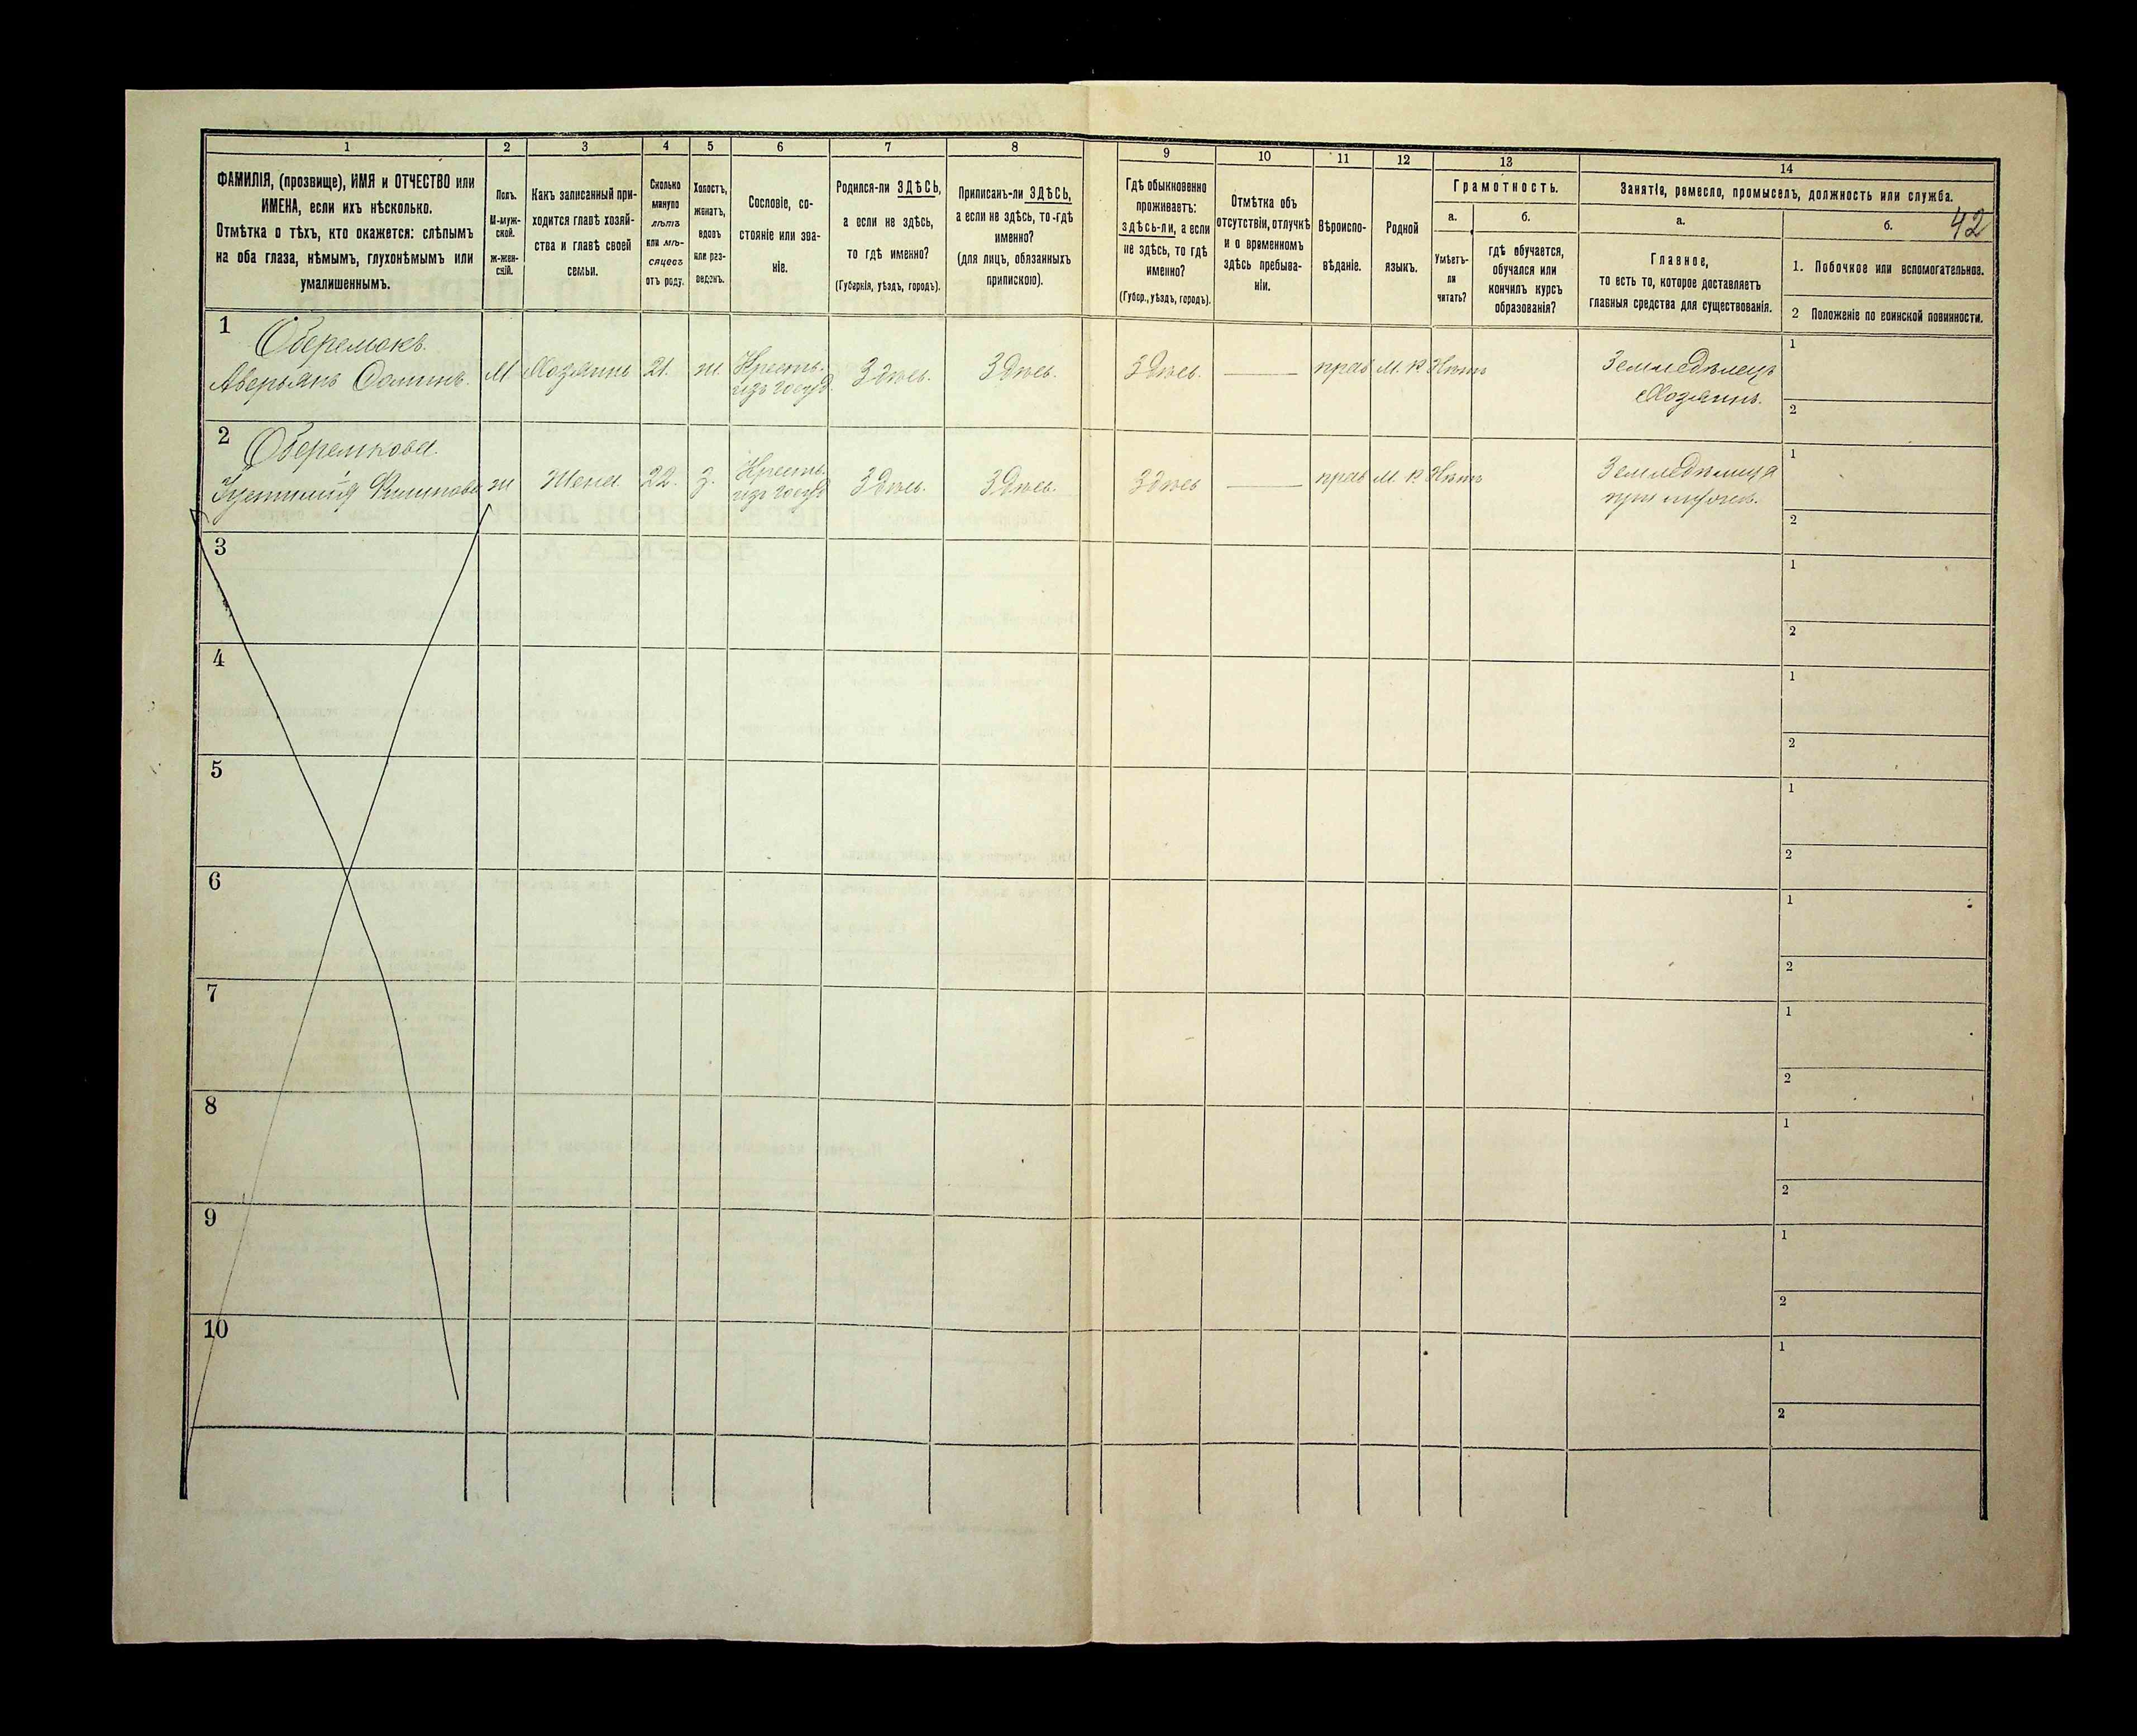 1 2 3 4 5 6 7 8 9 10 11 12 13 14
ФАМИЛІЯ, (прозвище), ИМЯ и ОТЧЕСТВО или
ИМЕНА, если ихъ нѣсколько.
Отмѣтка о тѣхъ, кто окажется: слѣпымъ
на оба глаза, нѣмымъ, глухонѣмымъ или
умалишеннымъ.
Полъ.
М-муж-
ской.
Ж-жен-
скій.
Какъ записанный при-
ходится главѣ хозяй-
ства и главѣ своей
семьи.
Сколько
минуло
лѣтъ
или мѣ-
сяцевъ
отъ роду.
Холостъ,
женатъ,
вдовъ
или раз-
веденъ.
Сословіе, со-
стояніе или зва-
ніе.
Родился-ли ЗДѢСЬ,
а если не здѣсь,
то гдѣ именно?
(Губернія, уѣздъ, городъ).
Приписанъ-ли ЗДѢСЬ,
а если не здѣсь, то-гдѣ
именно?
(для лицъ, обязанныхъ
припискою).
Гдѣ обыкновенно
проживаетъ:
здѣсь-ли, а если
не здѣсь, то гдѣ
именно?
(Губер., уѣздъ, городъ).
Отмѣтка объ
отсутствіи, отлучкѣ
и о временномъ
здѣсь пребыва-
ніи.
Вѣроиспо-
вѣданіе.
Родной
языкъ.
Грамотность.
а.
Умѣетъ-
ли
читать?
б.
гдѣ обучается,
обучался или
кончилъ курсъ
образованія?
Занятіе, ремесло, промыселъ, должность или служба.
а.
Главное,
то есть то, которое доставляетъ
главныя средства для существованія.
б.
42
1. Побочное или вспомогательное.
2 Положеніе по воинской повинности.
1
Оберемокъ.
Аверьянъ
М
Хозяинъ
21.
ж.
Кресть.
изъ госуд
Здѣсь.
Здѣсь.
Здѣсь.
прав
М. Р
Нѣтъ
Земледѣлецъ
Хозяинъ.
1
2
2
Оберемкова.
ж
Жена
22.
з.
Кресть.
изъ госуд
Здѣсь.
Здѣсь.
Здѣсь
прав
М. Р
Нѣтъ
Земледѣлица
при мужѣ.
1
2
3
1
2
4
1
2
5
1
2
6
1
2
7
1
2
8
1
2
9
1
2
10
1
2